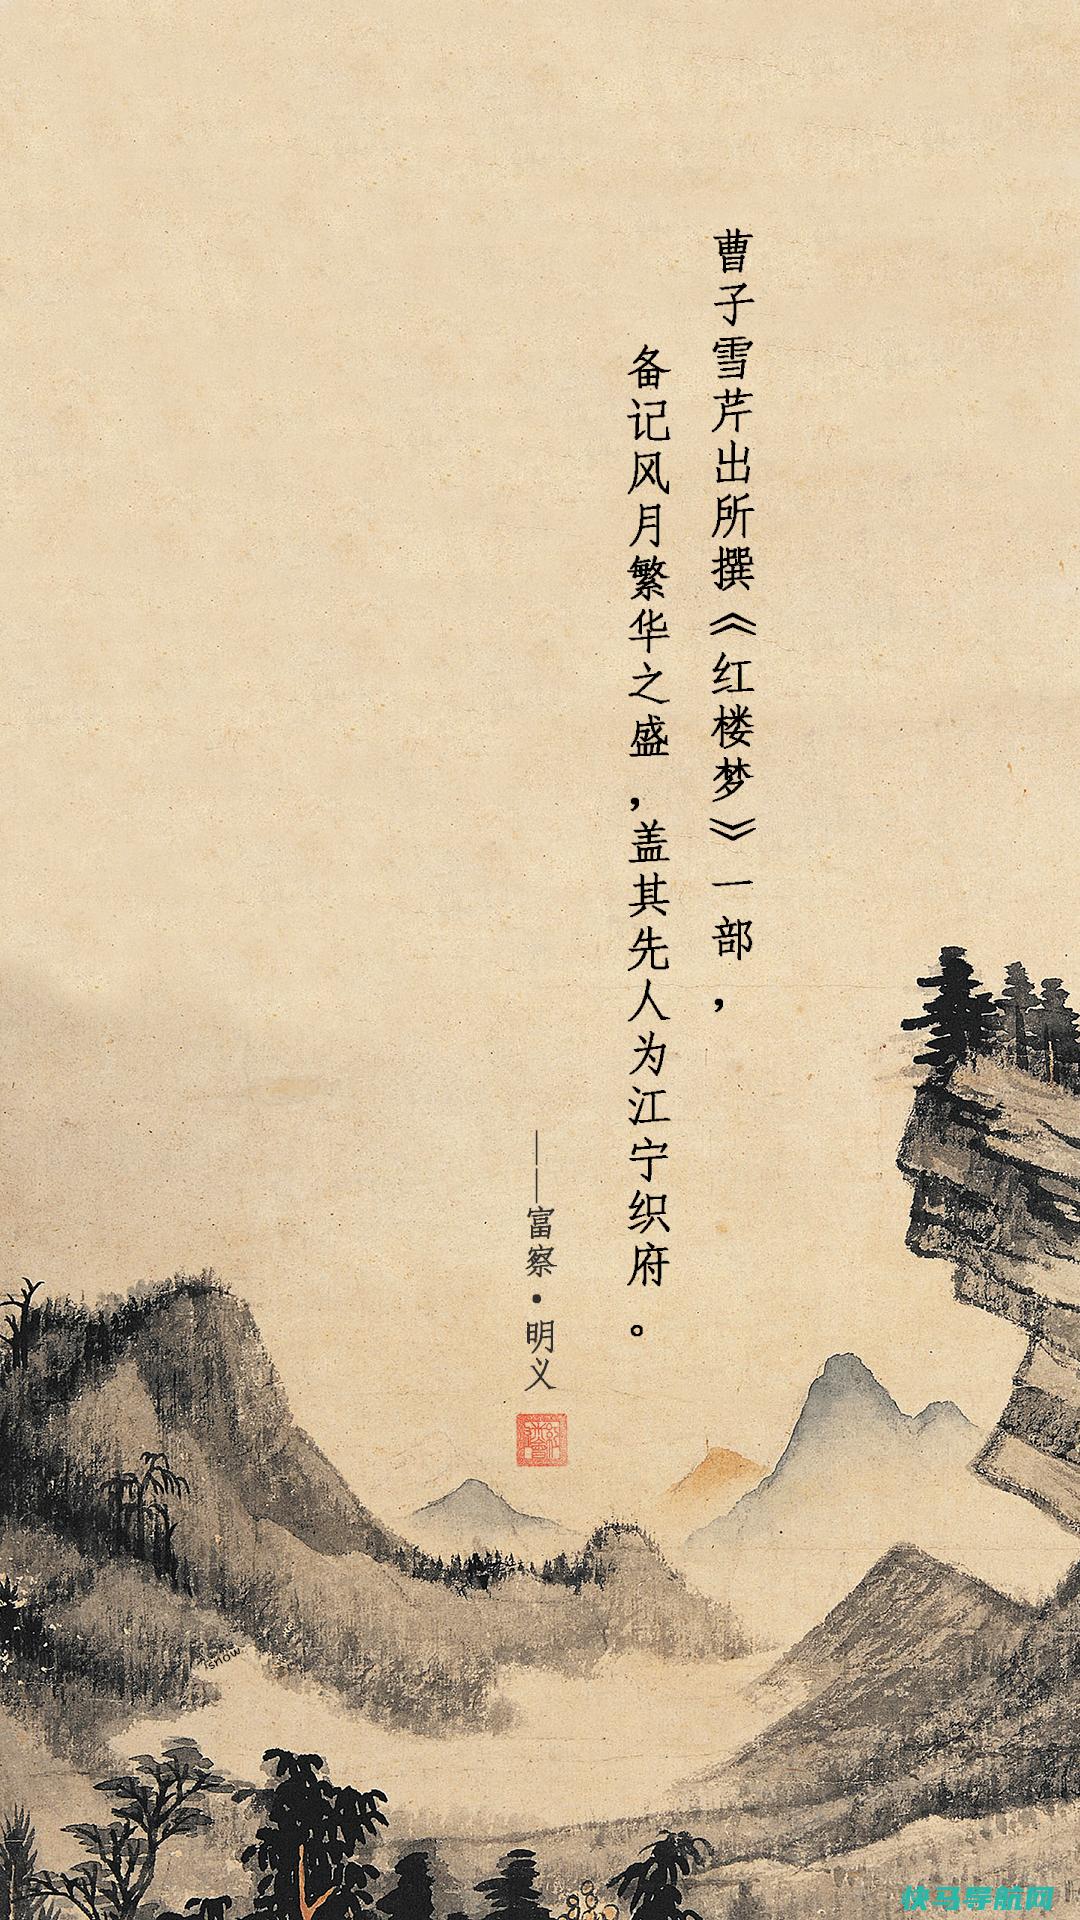 曹子雪芹出所撰《红楼梦》一部，
备记风月繁华之盛，盖其先人为江宁织府。
——富察·明义
snow
快马导航网